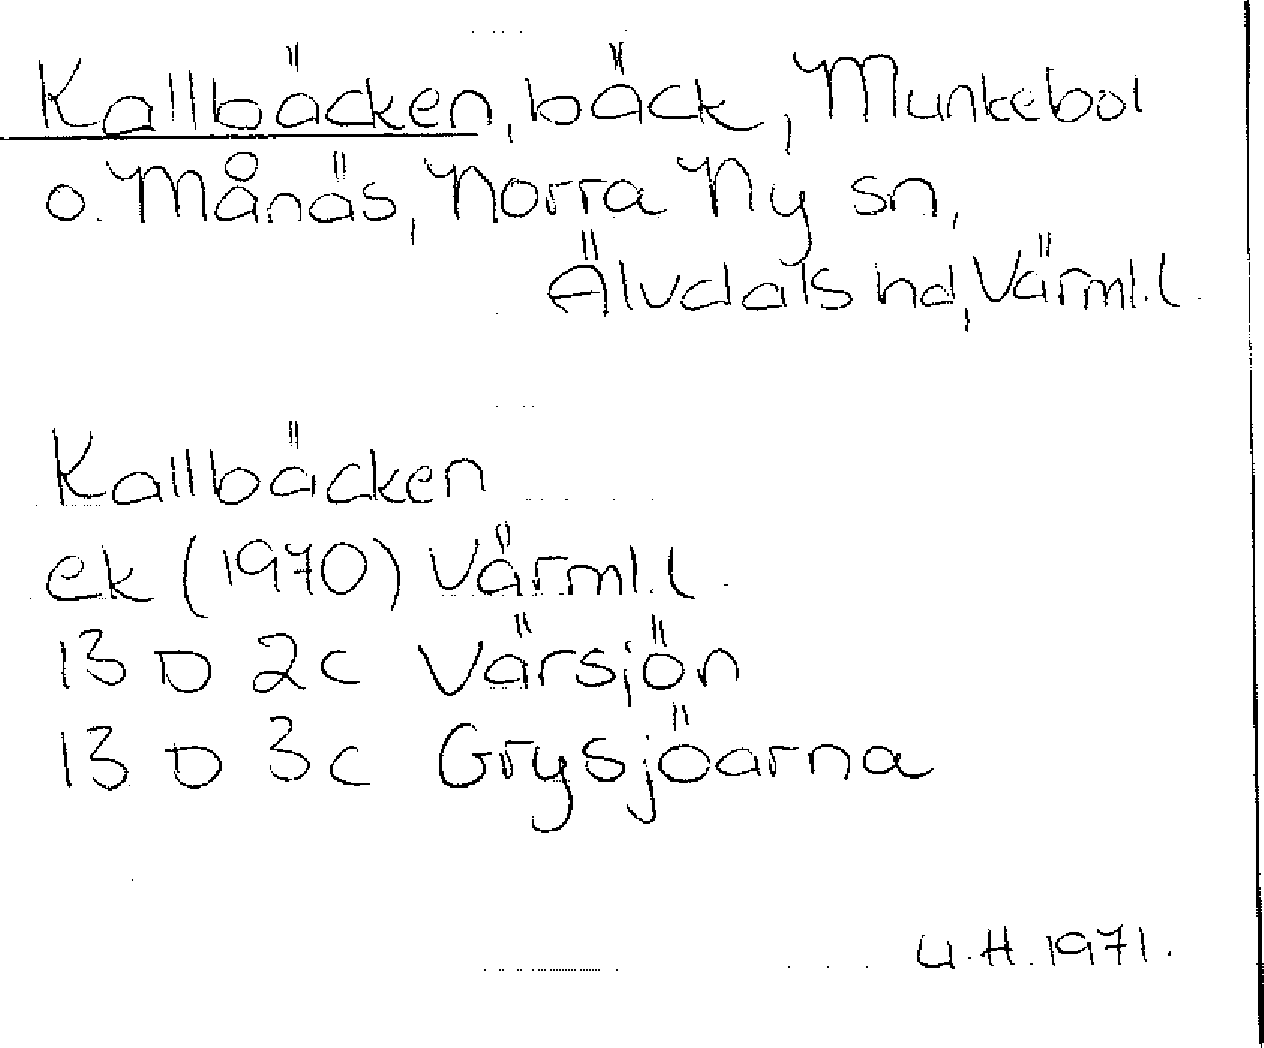 Kallbäcken, bäck, Munkebol
o. Månäs, Norra Ny sn,
Älvdals hd, Värml. l.
Kallbäcken
ek (1970) Värml. l.
13 D 2c Värsjön
13 D 3c Grysjöarna
U.H. 1971.